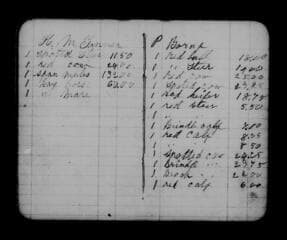 1 spotted steer 11.50
1 red cow 24.00
1 span mules 132.00
1 bay hors. 60.00
1 " mare
P Bornp
1 Red bull
1 " Steer
1 Red cow 25.00
1 Spoted cow
1 Red heifer
1 red steer 5.50
1 Brindle calf 7.00
1 red calf 8.25
1 " " 8.50
1 Spotted cow 24.25
1 Brindle " 23.75
1 Brock " 22.00
1 red calf 6.00